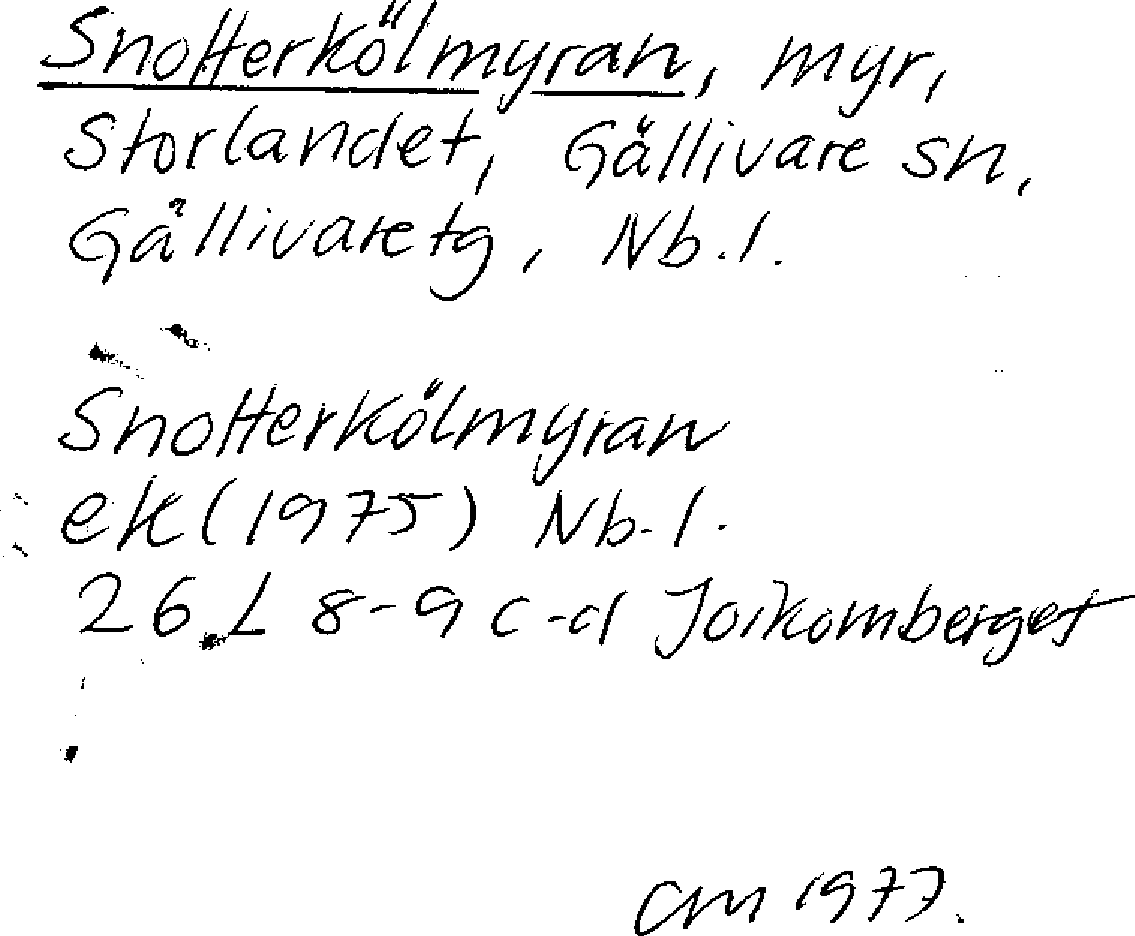 Snotterkölmyran, myr,
Storlandet, Gällivare sn,
Gällivare tg, Nb.l.
Snotterkölmyran
ek (1975) Nb.l.
26 L 8-9 c-d Joikomberget
CM 1977.